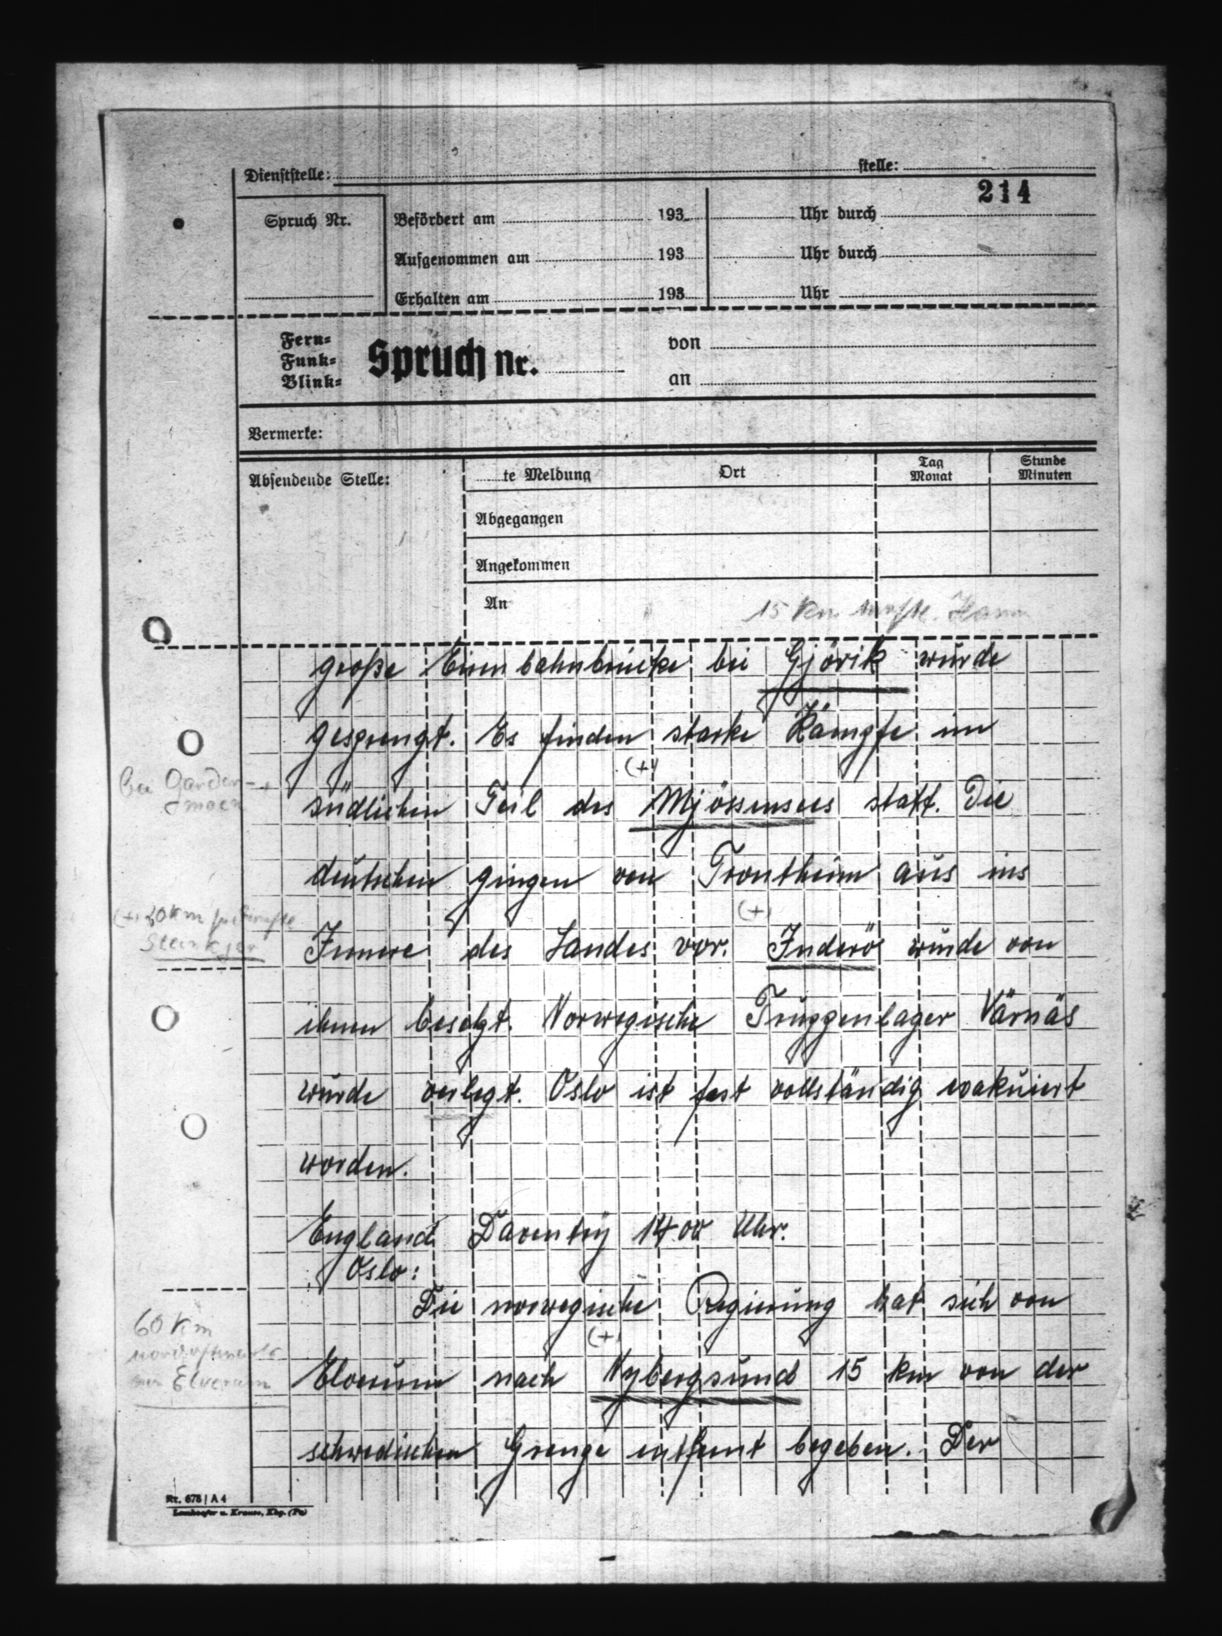 Dienststelle: stelle:
214
Spruch Nr. Befördert am 193 Uhr durch
Aufgenommen am 193 Uhr durch
Erhalten am 193 Uhr
Fern-
Funk-
Blink-
Spruch nr.
von
an
Vermerke:
Absendende Stelle: te Meldung Ort Tag Monat Stunde Minuten
Abgegangen
Angekommen
An
15 km
große Eisenbahnbrücke bei Gjörik wurde
gesprengt. Es finden starke Kämpfe im
(+)
bei Garder-
moen
+
südlichen Teil des Mjössensees statt. Die
deutschen gingen von Trontheim aus ins
(+)
(+) 20 km
Steinkjer
Innere des Landes vor. Inderö wurde von
ihnen besetzt. Norwegische Truppenlager Värnäs
wurde verlegt. Oslo ist fast vollständig evakuiert
worden.
England Daventry 1400 Uhr.
Oslo:
Die norwegische Regierung hat sich von
(+)
60 km
nordostwärts
von Elverum
Elverum nach Nybergsund 15 km von der
schwedischen Grenze entfernt begeben. Der
Nr. 678 | A 4